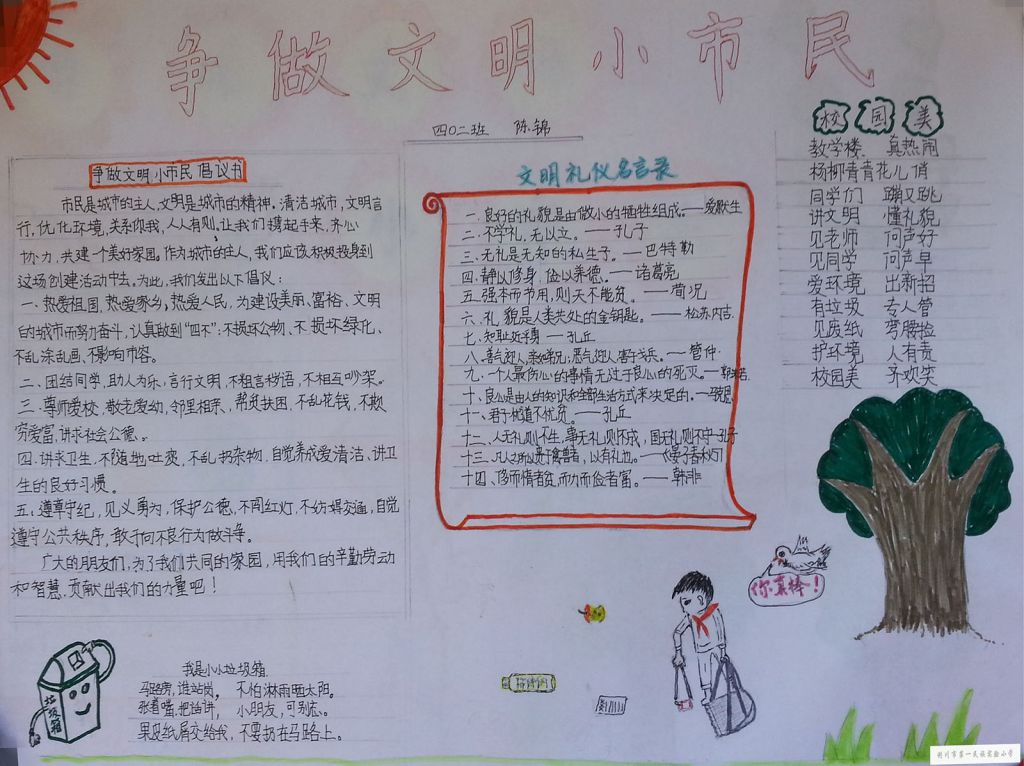 争做文明小市民
四〇二班 陈锦
争做文明小市民倡议书
市民是城市的主人,文明是城市的精神。清洁城市,文明言
行,优化环境,关系你我,人人有则。让我们携起手来,齐心
协力,共建一个美好家园。作为城市的主人,我们应该积极投身到
这场创建活动中去。为此,我们发出以下倡议:
一、热爱祖国,热爱家乡,热爱人民,为建设美丽、富裕、文明
的城市而努力奋斗,认真做到“四不”:不损坏公物、不损坏绿化、
不乱涂乱画,不影响市容。
二、团结同学,助人为乐,言行文明,不粗言秽语,不相互吵架。
三、尊师爱校,敬老爱幼,邻里相亲,帮贫扶困,不乱花钱,不欺
穷爱富,讲求社会公德。
四、讲求卫生,不随地吐痰,不乱扔杂物,自觉养成爱清洁、讲卫
生的良好习惯。
五、遵章守纪,见义勇为,保护公德,不闯红灯,不妨碍交通,自觉
遵守公共秩序,敢于向不良行为做斗争。
广大的朋友们,为了我们共同的家园,用我们的辛勤劳动
和智慧,贡献出我们的力量吧!
文明礼仪名言录
一、良好的礼貌是由做小的牺牲组成。——爱默生
二、不学礼,无以立。——孔子
三、无礼是无知的私生子。——巴特勒
四、静以修身,俭以养德。——诸葛亮
五、强本而节用,则天不能贫。——荀况
六、礼貌是人类共处的金钥匙。——松苏内吉
七、知耻近乎勇——孔丘
八、善气迎人,亲如弟兄;恶气迎人,害于戈兵。——管仲
九、一个人最伤心的事情无过于良心的死灭。——郭沫若
十、良心是由人的知识和全部生活方式来决定的。
十一、君子忧道不忧贫。——孔丘
十二、人无礼则不生,事无礼则不成,国无礼则不宁——孔子
十三、凡人之所以贵于禽兽者,以有礼也。——《晏子春秋》
十四、侈而惰者贫,而力而俭者富。——韩非
校园美
教学楼 真热闹
杨柳青青花儿俏
同学们 蹦又跳
讲文明 懂礼貌
见老师 问声好
见同学 问声早
爱环境 出新招
有垃圾 专人管
见废纸 弯腰捡
护环境 人有责
校园美 齐欢笑
你真棒!
垃圾箱
我是小小垃圾箱
马路旁,谁站岗, 不怕淋雨晒太阳。
张着嘴,把话讲, 小朋友,可别忘。
果皮纸屑交给我,不要扔在马路上。
荆州市第一民族实验小学